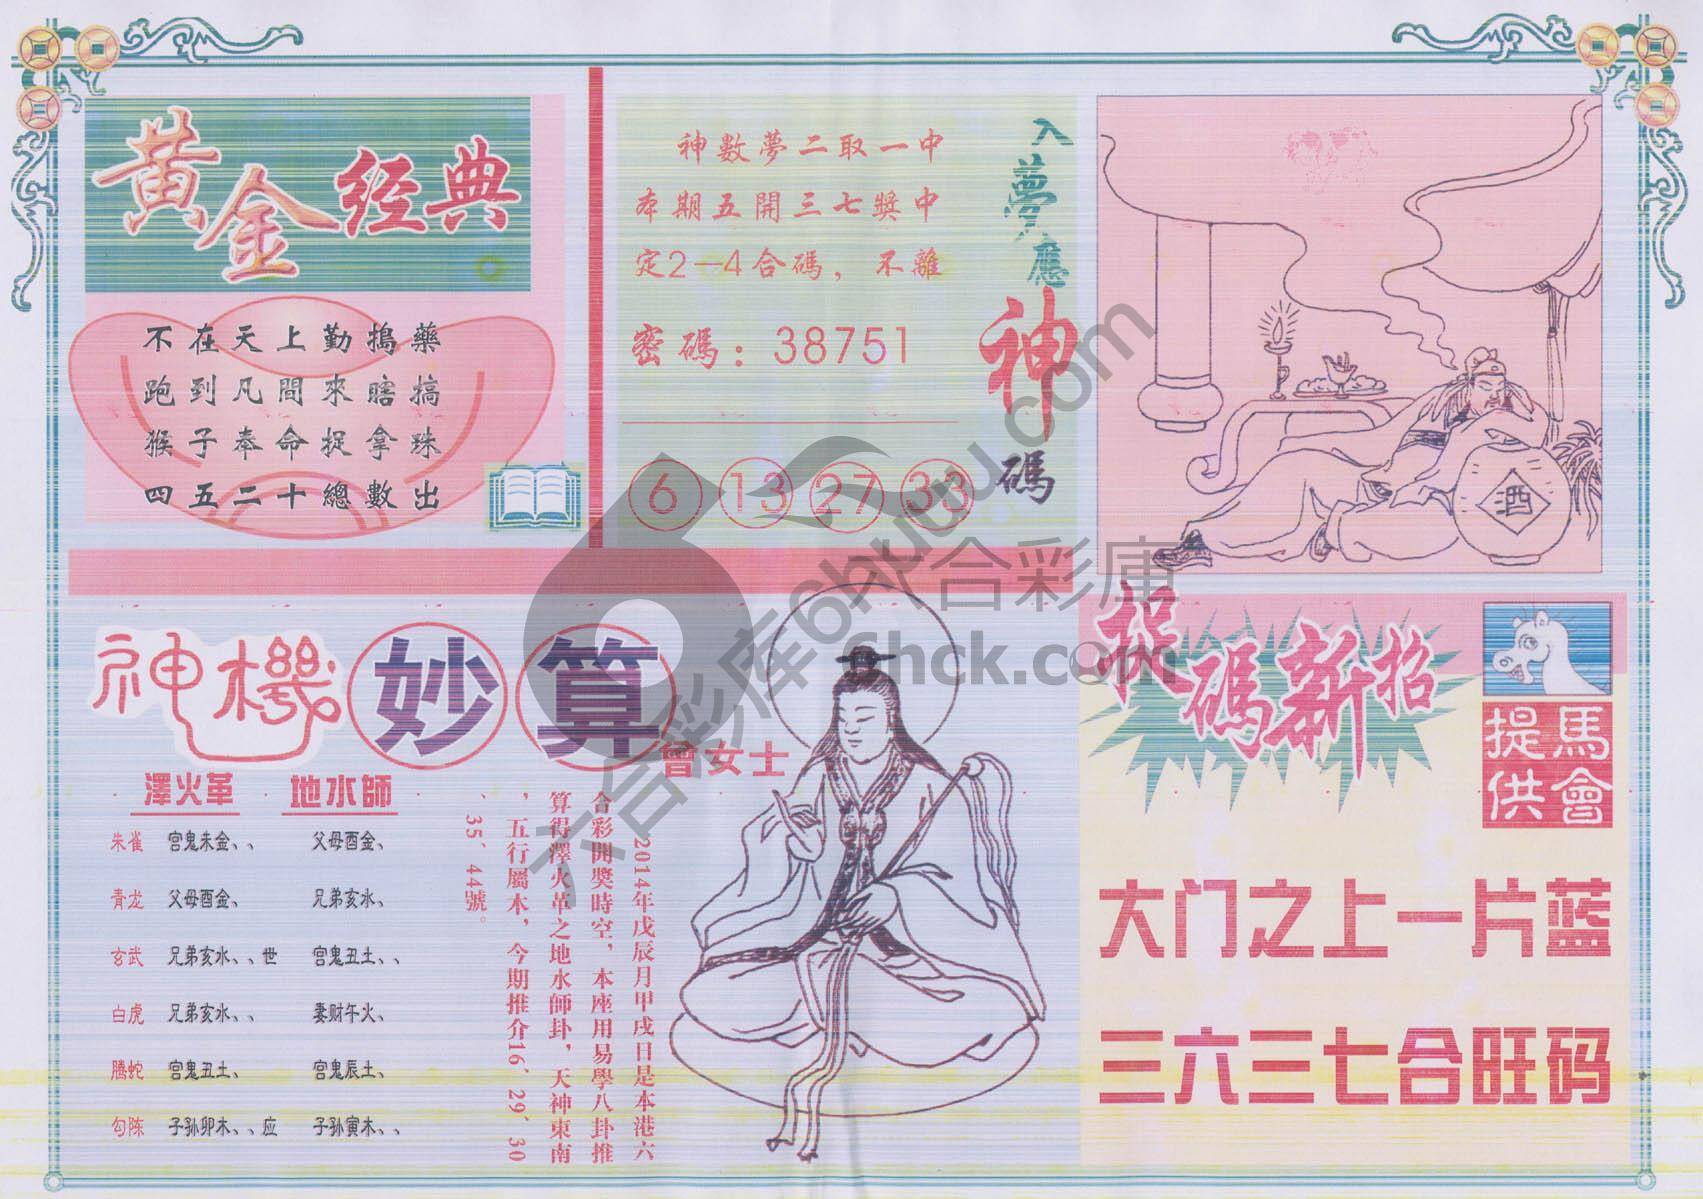 黄金经典
不在天上勤搗藥
跑到凡間來瞎搞
猴子奉命捉拿珠
四五二十總數出
神數夢二取一中
本期五開三七獎中
定2—4合碼，不離
密碼：38751
6 13 27 33
入夢應神碼
酒
神機妙算
曾女士
澤火革 地水師
朱雀 宫鬼朱金、、 父母酉金、
青龙 父母酉金、 兄弟亥水、
玄武 兄弟亥水、、世 宫鬼丑土、、
白虎 兄弟亥水、、 妻财午火、
腾蛇 宫鬼丑土、 宫鬼辰土、
勾陈 子孙卯木、、应 子孙寅木、、
2014年戊辰月甲戌日是本港六
合彩開獎時空，本座用易學八卦推
算得澤火革之地水師卦，天神東南
，五行屬木，今期推介16、29、30
、35、44號。
捉碼新招
馬會
提供
大门之上一片蓝
三六三七合旺码
六合彩庫
6hck.com
六合彩库6hkuw.com